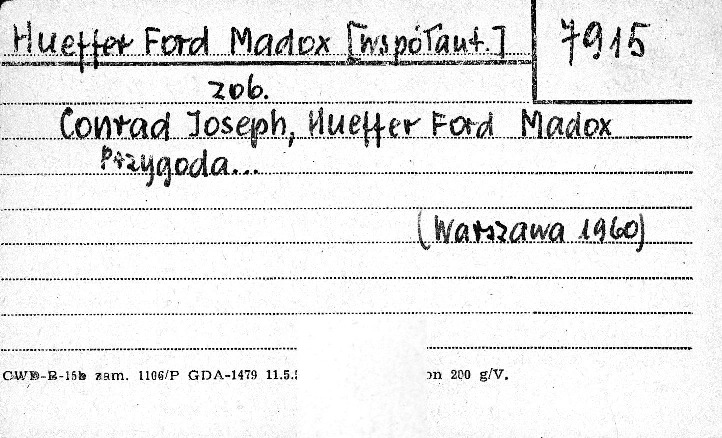 Hueffer Ford Madox [współaut.]
7915
zob.
Conrad Joseph, Hueffer Ford Madox
Przygoda...
(Warszawa 1960)
CWD-E-15b zam. 1106/P GDA-1479 11.5. on 200 g/V.